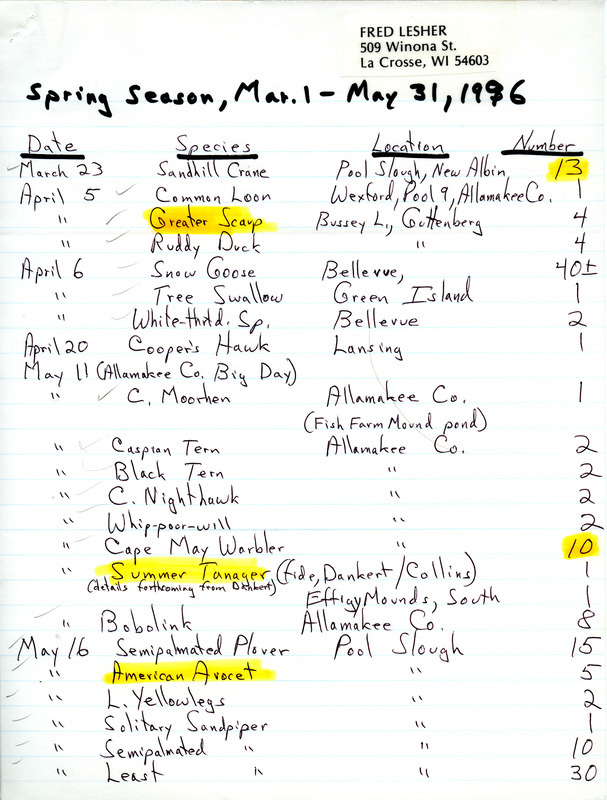 FRED LESHER
509 Winona St.
La Crosse, WI 54603
Spring Season, Mar. 1 - May 31, 1996
Date Species Location Number
March 23 Sandhill Crane Pool Slough, New Albin 13
April 5 Common Loon Wexford, Pool 9, Allamakee Co. 1
" Greater Scaup Bussey L, Guttenberg 4
" Ruddy Duck " 4
April 6 Snow Goose Bellevue, 40±
" Tree Swallow Green Island 1
" White-thrtd. Sp. Bellevue 2
April 20 Cooper's Hawk Lansing 1
May 11 (Allamakee Co. Big Day)
" C. Moorhen Allamakee Co. 1
(Fish Farm Mound pond)
" Caspian Tern Allamakee Co. 2
" Black Tern " 2
" C. Nighthawk 2
" Whip-poor-will 2
" Cape May Warbler " 10
" Summer Tanager (fide, Dankert/Collins) 1
(details forthcoming from Dankert) Effigy Mounds, South 1
" Bobolink Allamakee Co. 8
May 16 Semipalmated Plover Pool Slough 15
" American Avocet " 5
" L. Yellowlegs 2
" Solitary Sandpiper 1
" Semipalmated " " 10
" Least " " 30